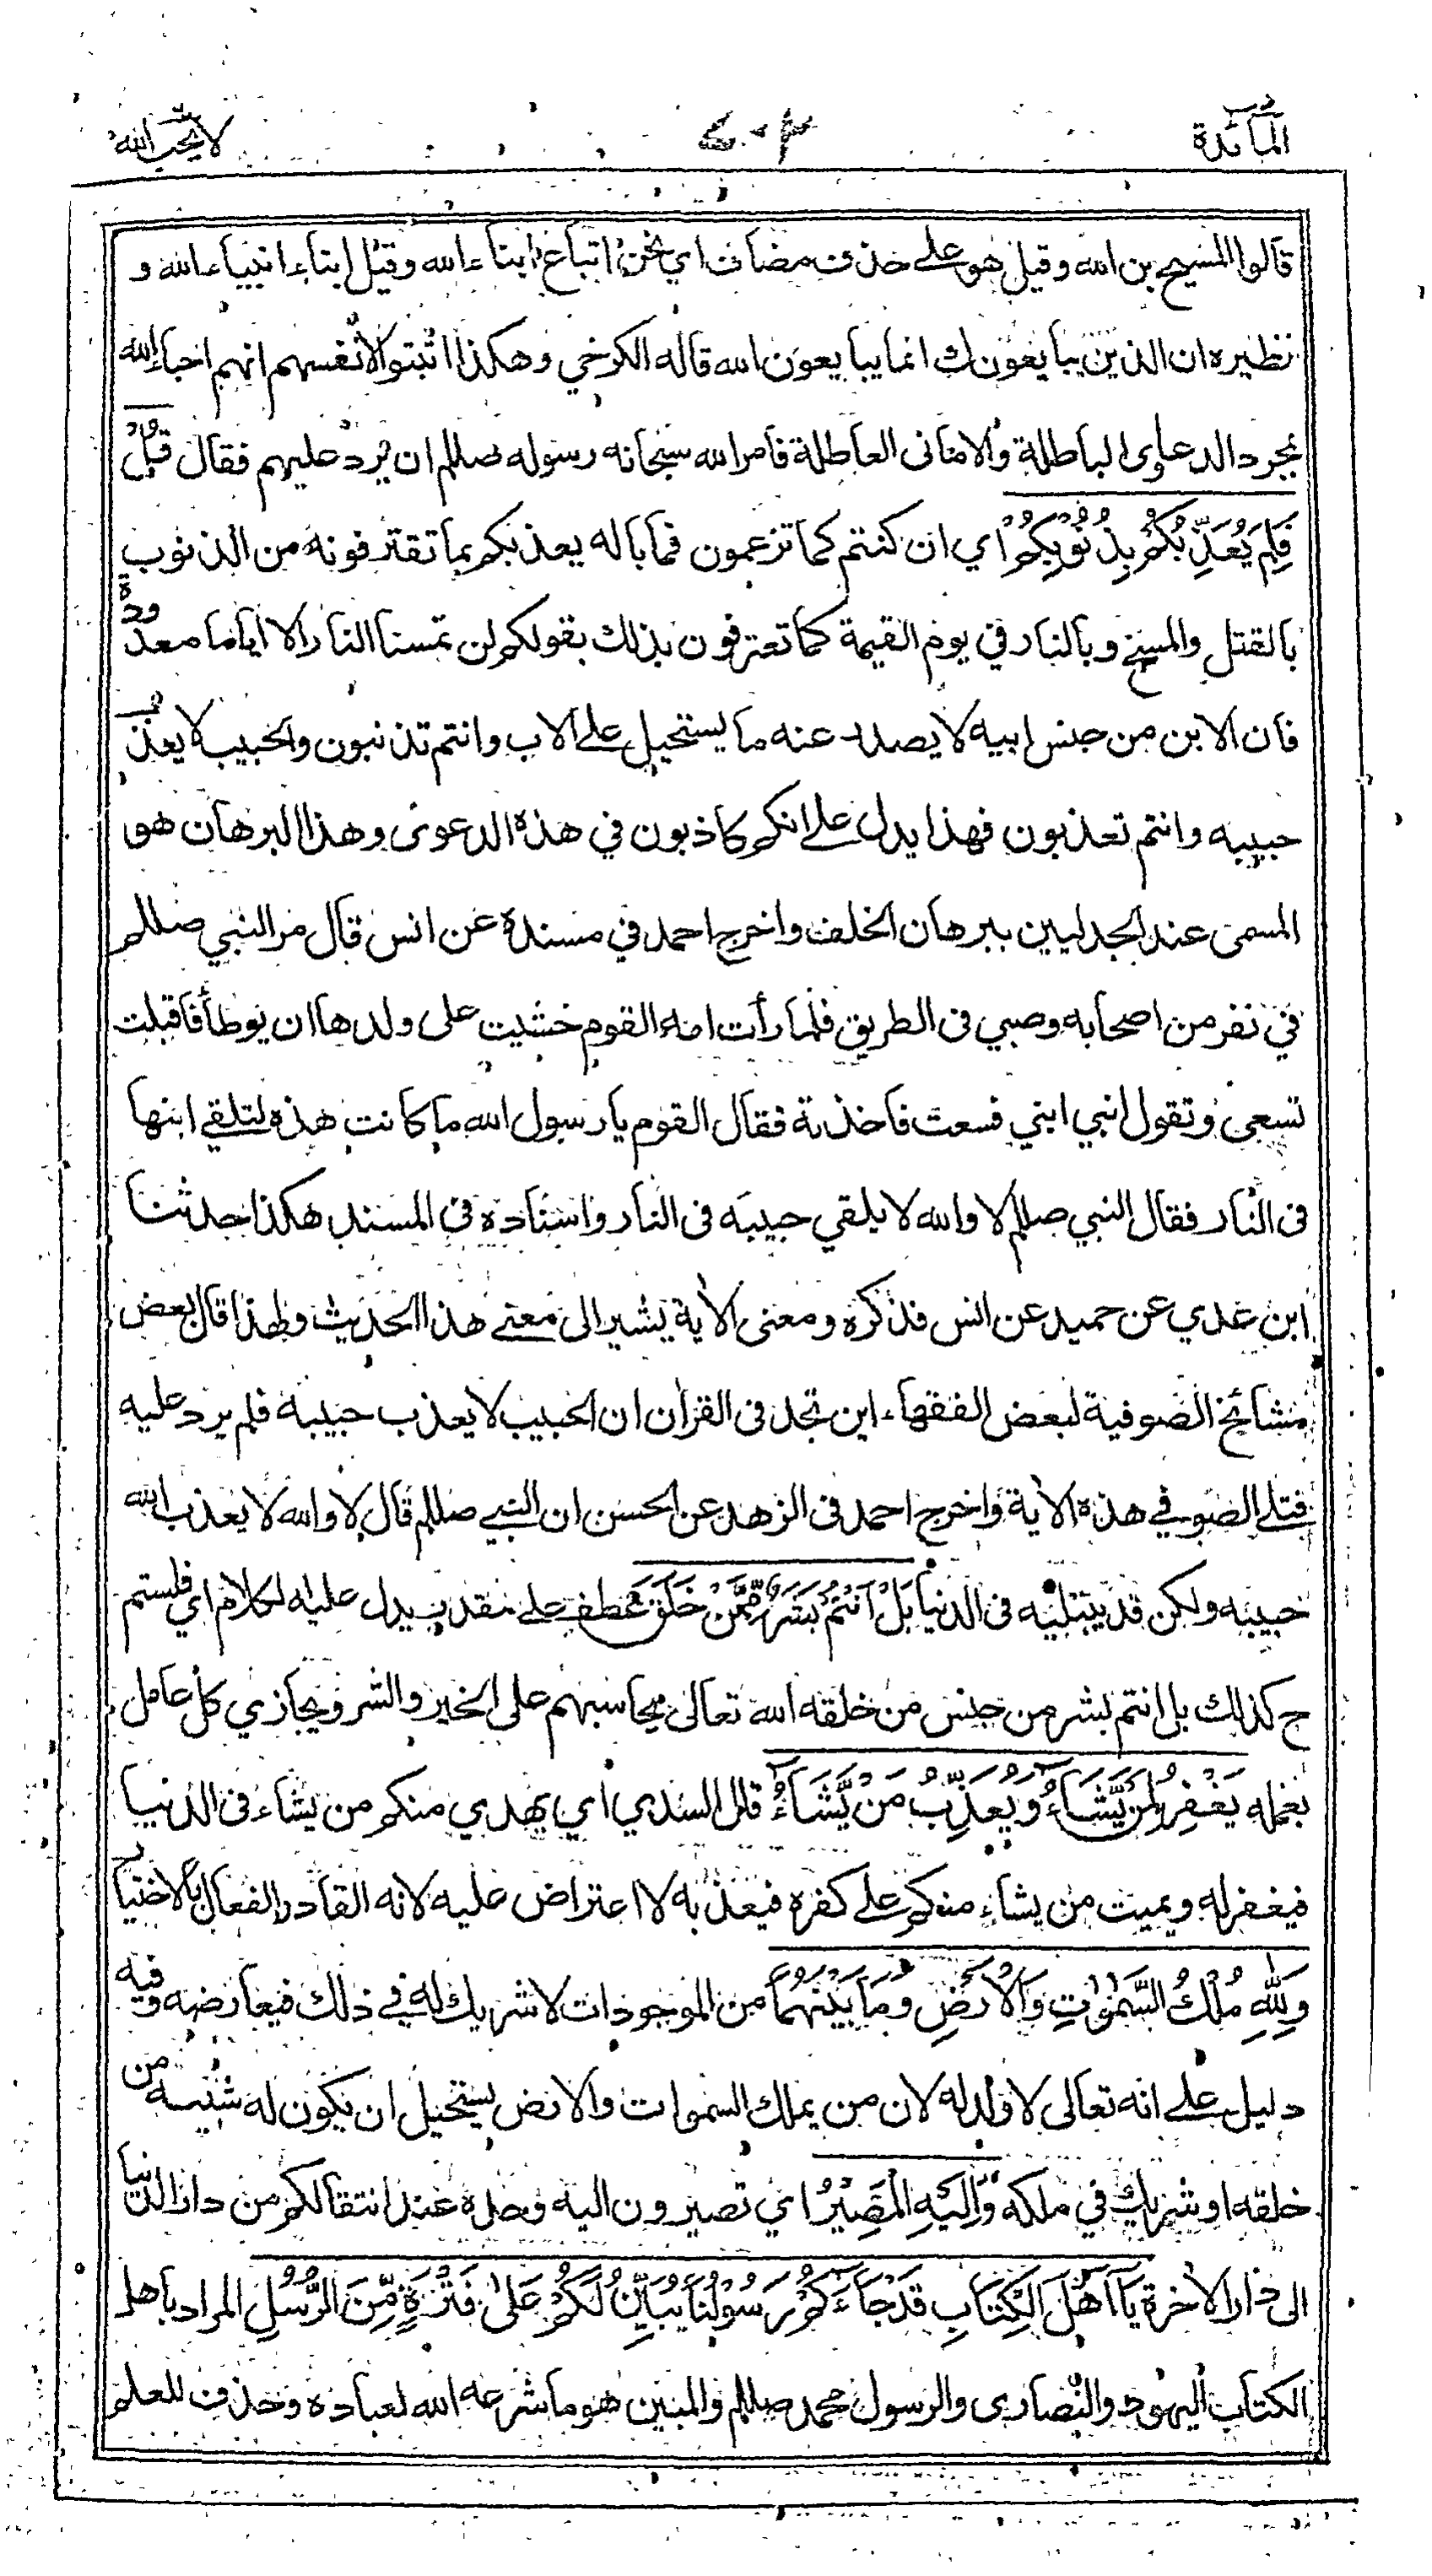 المآئدة
لا يحب الله
قالوا المسيح بن الله وقيل هو على حذف مضاف اي نحن اتباع ابناء الله وقيل ابناء انبياء الله و
نظيره ان الذين يبايعونك انما يبايعون الله قاله الكرخي وهكذا اثبتوا لانفسهم انهم احباء الله
بمجرد الدعاوى الباطلة والاماني العاطلة فامر الله سبحانه رسوله صللم ان يرد عليهم فقال قُلْ
فَلِمَ يُعَذِّبُكُمْ بِذُنُوْبِكُمْ اي ان كنتم كما تزعمون فما باله يعذبكم بما تقترفونه من الذنوب
بالقتل والمسخ وبالنار في يوم القيمة كما تعترفون بذلك بقولكم لن تمسنا النار الا اياما معدودة
فان الابن من جنس ابيه لا يصدر عنه ما يستحيل على الاب وانتم تذنبون والحبيب لا يعذب
حبيبه وانتم تعذبون فهذا يدل على انكم كاذبون في هذه الدعوى وهذا البرهان هو
المسمى عند الجدليين ببرهان الخلف واخرج احمد في مسنده عن انس قال مر النبي صللم
في نفر من اصحابه وصبي في الطريق فلما رأت امه القوم خشيت على ولدها ان يوطأ فاقبلت
تسعى وتقول ابني ابني فسعت فاخذته فقال القوم يا رسول الله ما كانت هذه لتلقي ابنها
فى النار فقال النبي صللم لا والله لا يلقي حبيبه فى النار واسناده فى المسند هكذا حدثنا
ابن عدي عن حميد عن انس فذكره ومعنى الاية يشير الى معنى هذا الحديث ولهذا قال بعض
مشائخ الصوفية لبعض الفقهاء اين تجد فى القران ان الحبيب لا يعذب حبيبه فلم يرد عليه
فتلى الصوفي هذه الاية واخرج احمد فى الزهد عن الحسن ان النبي صللم قال لا والله لا يعذب الله
حبيبه ولكن قد يبتليه فى الدنيا بَلْ اَنْتُمْ بَشَرٌ مِّمَّنْ خَلَقَ عطف على مقدر يدل عليه الكلام اي فلستم
ح كذلك بل انتم بشر من جنس من خلقه الله تعالى يحاسبهم على الخير والشر ويجازي كل عامل
بعمله يَغْفِرُ لِمَنْ يَّشَآءُ وَيُعَذِّبُ مَنْ يَّشَآءُ قال السدي اي يهدي منكم من يشاء فى الدنيا
فيغفر له ويميت من يشاء منكم على كفره فيعذبه لا اعتراض عليه لانه القادر الفعال بالاختيار
وَلِلّٰهِ مُلْكُ السَّمٰوٰتِ وَالْاَرْضِ وَمَا بَيْنَهُمَا من الموجودات لا شريك له في ذلك فيعارضه وفيه
دليل على انه تعالى لا ولد له لان من يملك السموات والارض يستحيل ان يكون له شبيه من
خلقه او شريك في ملكه وَاِلَيْهِ الْمَصِيْرُ اي تصيرون اليه وحده عند انتقالكم من دار الدنيا
الى دار الاخرة يَآ اَهْلَ الْكِتَابِ قَدْ جَآءَكُمْ رَسُوْلُنَا يُبَيِّنُ لَكُمْ عَلٰى فَتْرَةٍ مِّنَ الرُّسُلِ المراد باهل
الكتاب اليهود والنصارى والرسول محمد صللم والمبين هو ما شرعه الله لعباده وحذف للعلم